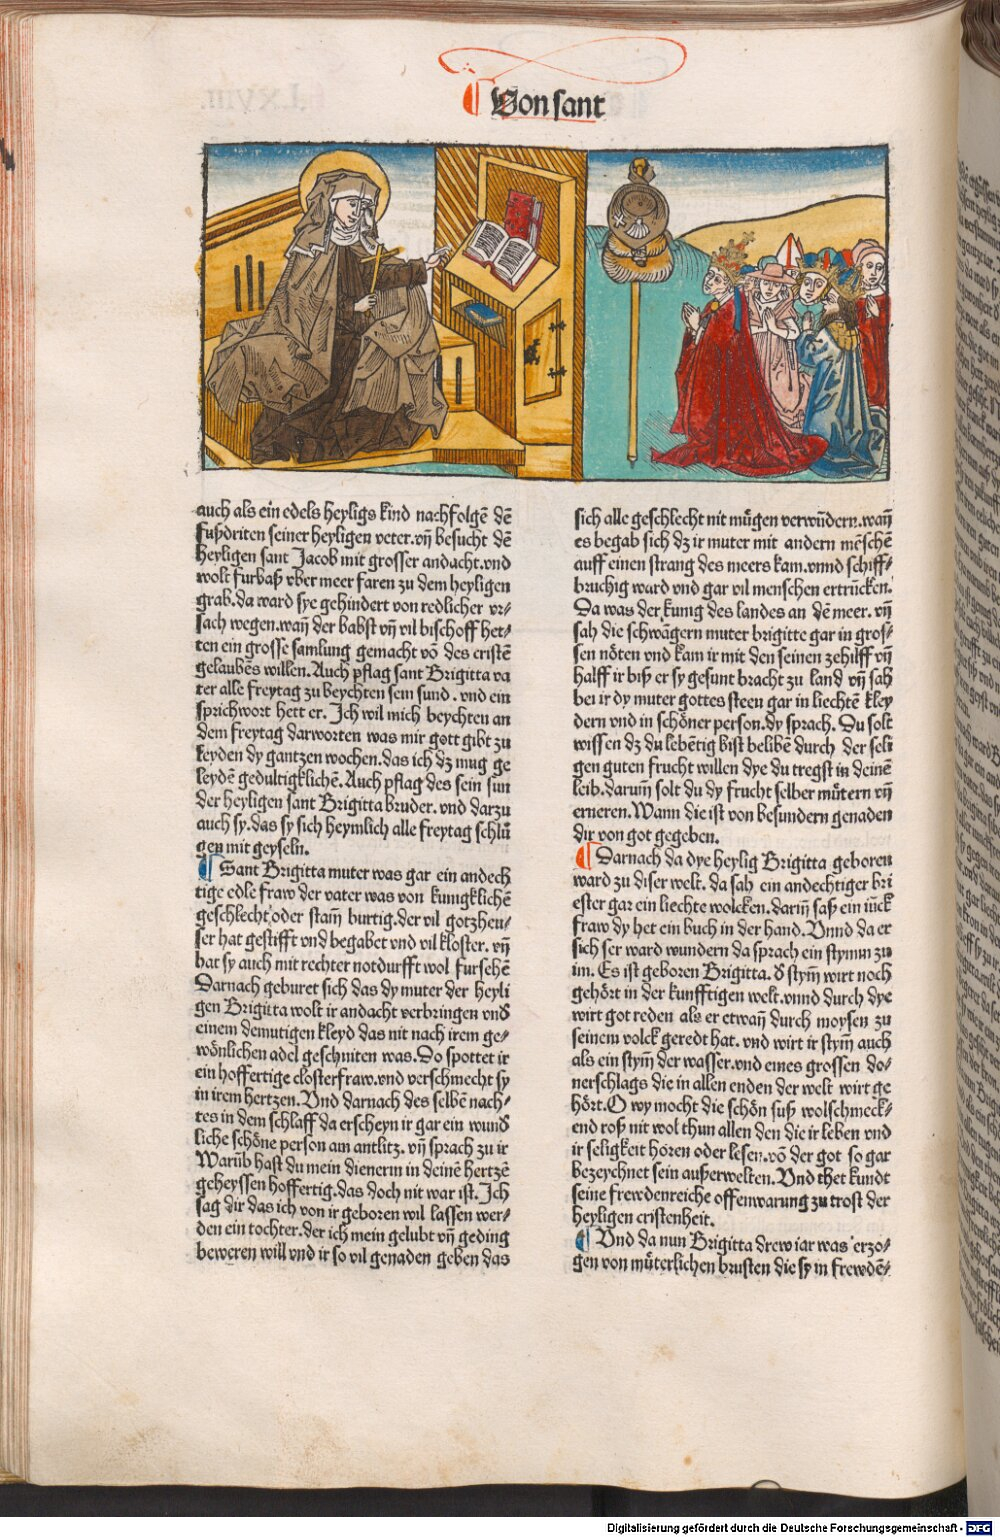 ¶ Von sant
auch als ein edels heyligs kind nachfolgē dē
fußdriten seiner heyligen veter. vn̄ besucht dē
heyligen sant Jacob mit grosser andacht. vnd
wolt furbaß vber meer faren zu dem heyligen
grab. da ward sye gehindert von redlicher vr⸗
sach wegen. wan̄ der babst vn̄ vil bischoff het⸗
ten ein grosse samlung gemacht vō des cristē
gelaubēs willen. Auch pflag sant Brigitta va
ter alle freytag zu beychten sein sund. vnd ein
sprichwort hett er. Ich wil mich beychten an
dem freytag darworten was mir gott gibt zu
leyden dy gantzen wochen. das ich dz mug ge
leydē gedultigklichē. Auch pflag des sein sun
der heyligen sant Brigitta bruder. vnd darzu
auch sy. das sy sich heymlich alle freytag schlu
gen mit geyseln.
¶ Sant Brigitta muter was gar ein andech
tige edle fraw der vater was von kunigklichē
geschlecht oder stam̄ burtig. der vil gotzheu⸗
ser hat gestifft vnd begabet vnd vil kloster. vn̄
hat sy auch mit rechter notdurfft wol fursehē
Darnach geburet sich das dy muter der heyli
gen Brigitta wolt ir andacht verbringen vnd
einem demutigen kleyd das nit nach irem ge⸗
wönlichen adel geschniten was. Do spottet ir
ein hoffertige closterfraw. vnd verschmecht sy
in irem hertzen. Vnd darnach des selbē nach⸗
tes in dem schlaff da erscheyn ir gar ein wund
liche schöne person am antlitz. vn̄ sprach zu ir
Warūb hast du mein dienerin in deinē hertzē
geheyssen hoffertig. das doch nit war ist. Ich
sag dir das ich von ir geboren wil lassen wer⸗
den ein tochter. der ich mein gelubt vn̄ geding
beweren will vnd ir so vil genaden geben das
sich alle geschlecht nit mügen verwūdern. wan̄
es begab sich dz ir muter mit andern mēschē
auff einen strang des meers kam. vnnd schiff⸗
bruchig ward vnd gar vil menschen ertrūcken.
Da was der kunig des landes an dē meer. vn̄
sah die schwāgern muter brigitte gar in gros⸗
sen nöten vnd kam ir mit den seinen zehilff vn̄
halff ir biß er sy gesunt bracht zu land vn̄ sah
bei ir dy muter gottes steen gar in liechtē kley
dern vnd in schöner person. dy sprach. Du solt
wissen dz du lebētig bist belibē durch der seli
gen guten frucht willen dye du tregst in deinē
leib. darum̄ solt du dy frucht selber mütern vn̄
erneren. Wann die ist von besundern genaden
dir von got gegeben.
¶ Darnach da dye heylig Brigitta geboren
ward zu diser welt. da sah ein andechtiger bri
ester gar ein liechte wolcken. darin̄ saß ein iūck
fraw dy het ein buch in der hand. Vnnd da er
sich ser ward wundern da sprach ein stymm zu
im. Es ist geboren Brigitta. d̄ stym̄ wirt noch
gehört in der kunfftigen welt. vnnd durch dye
wirt got reden als er etwan̄ durch moysen zu
seinem volck geredt hat. vnd wirt ir stym̄ auch
als ein stym̄ der wasser. vnd eines grossen do⸗
nerschlags die in allen enden der welt wirt ge
hört. O wy mocht die schön suß wolschmeck⸗
end roß nit wol thun allen den die ir leben vnd
ir seligkeit hören oder lesen. vō der got so gar
bezeychnet sein außerwelten. Vnd thet kundt
seine frewdenreiche offenwarung zu trost der
heyligen cristenheit.
¶ Vnd da nun Brigitta drew iar was erzo⸗
gen von müterlichen brusten die sy in frewdē⸗
Digitalisierung gefördert durch die Deutsche Forschungsgemeinschaft - DFG